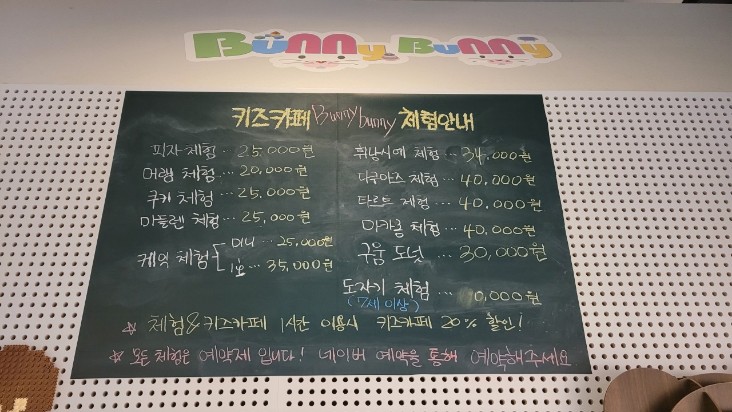 Bunny Bunny
키즈카페 Bunny bunny 체험안내
피자 체험 ·· 25,000원
머랭 체험 ··· 20,000원
쿠키 체험 ··· 25,000원
마들렌 체험 ··· 25,000원
케익 체험 미니 ··· 25,000원
1호 ··· 35,000원
휘낭시에 체험 ··· 34,000원
다쿠아즈 체험 ·· 40,000원
타르트 체험 ··· 40,000원
마카롱 체험 ··· 40,000원
구움 도넛 ··· 30,000원
도자기 체험 ··· 10,000원
(7세 이상)
☆ 체험&키즈카페 1시간 이용시 키즈카페 20% 할인!
☆ 모든 체험은 예약제 입니다! 네이버 예약을 통해 예약해주세요